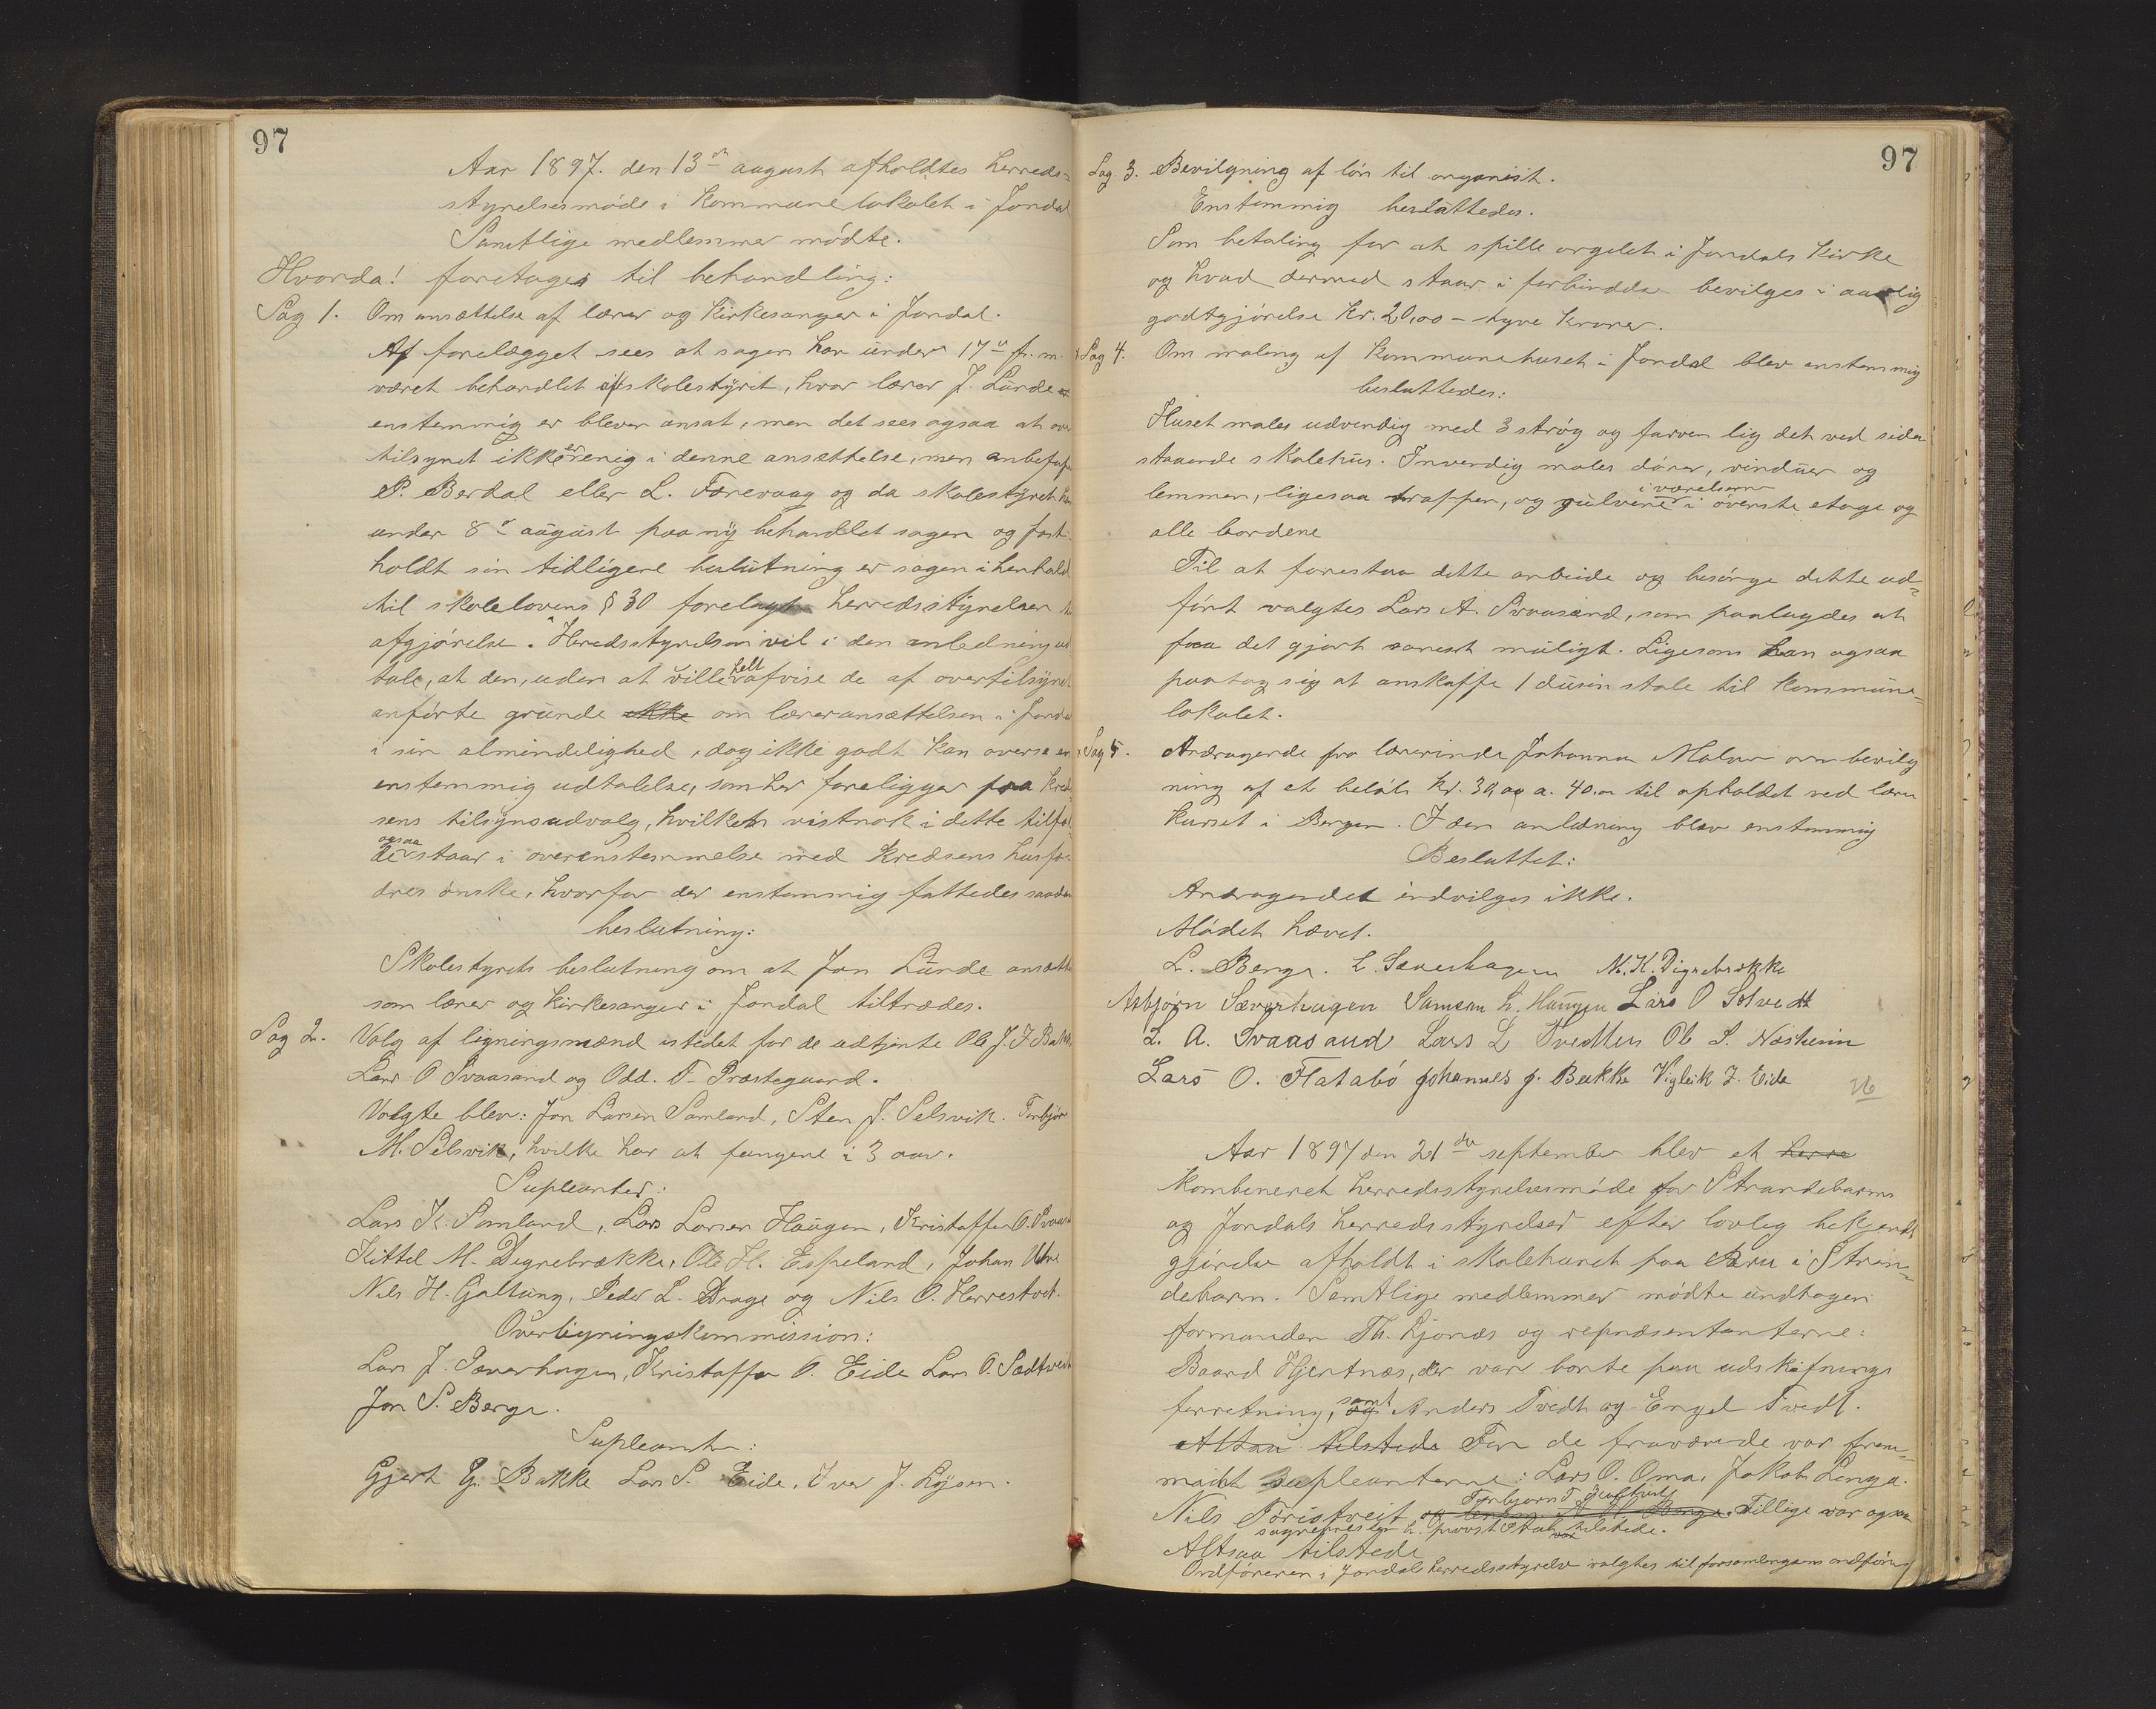 97
Aar 1897. den 13de august afholdtes herreds-
styrelsesmöde i Kommunelokalet i Jondal
Samtlige medlemmer mödte.
Hvorda! foretages til behandling:
Sag 1. Om ansættelse af lærer og kirkesanger i Jondal.
Af forelægget sees at sagen har under 17de fr. m.
været behandlet af skolestyret, hvor lærer J. Lunde
enstemmig er bleven ansat, men det sees ogsaa at over
tilsynet ikke er enig i denne ansættelse, men anbefaler
P. Berdal eller L. Færevaag og da skolestyret har
under 8de august paa ny behandlet sagen og fast-
holdt sin tidligere beslutning er sagen i henhold
til skolelovens § 30 forelagt herredsstyrelsen til
afgjörelse. Heredsstyrelsen vil i den anledning ud
tale, at den, uden at ville helt afvise de af overtilsynet
anförte grunde ikke om læreransættelsen i Jondal
i sin almindelighed, dog ikke godt kan overse en
enstemmig udtalelse, som her foreligger fra kred-
sens tilsynsudvalg, hvilket vistnok i dette tilfæl-
de ogsaa staar i overenstemmelse med kredsens husfæ-
dres önske, hvorfor der enstemmig fattedes saadan
beslutning:
Skolestyrets beslutning om at Jon Lunde ansættes
som lærer og kirkesanger i Jondal tiltrædes.
Sag 2. Valg af ligningsmænd istedet for de udtjente Ole J. J Bakke
Lars O Svaasand og Odd. T. Præstegaard.
Valgte blev: Jon Larsen Samland, Sten J. Selsvik. Torbjör
M. Selsvik, hvilke har at fungere i 3 aar.
Supleanter:
Lars K. Samland, Lars Larsen Haugen, Kristoffer O. Svaas
Kittel M. Degrebrække, Ole H. Espeland, Johan Utne
Nils H. Galtung, Peder L. Drage og Nils O. Herrestvet.
Overligningskommission:
Lars J. Sæverhagen, Kristoffer O. Eide Lars O. Sædtveit
Jon S. Berge.
Supleanter:
Gjert G. Bakke Lars S. Eide, Iver J. Lysen.
97
Sag 3. Bevilgning af lön til organist.
Enstemmig besluttedes.
Som betaling for at spille orgelet i Jondals Kirke
og hvad dermed staar i forbindelse bevilges i aarlig
godtgjörelse Kr. 20,00 - tyve kroner.
Sag 4. Om maling af Kommunehuset i Jondal blev enstemmig
besluttedes:
Huset males udvendig med 3 strög og farven lig det ved siden
staaende skolehus. Indvendig males dörer, vinduer og
lemmer, ligesaa trapper, og gulvene i værelserne i överste etage og
alle bordene
Til at forestaa dette arbeide og besörge dette ud-
fört valgtes Lars A. Svaasand, som paalagdes at
faa det gjort snarest muligt. Ligesom han ogsaa
paatog sig at anskaffe 1 dusin stole til kommune-
lokalet.
Sag 5. Andragende fra lærerinde Johanna Malun om bevilg
ning af et belöb Kr. 30,00 a. 40.00 til opholdet ved lærer
kurset i Bergen. I den anledning blev enstemmig
Besluttet:
Andragendet indvilges ikke.
Mödet hævet.
L. Berge. L. Sæverhagen N. K. Digrebrække
Asbjörn Sæverhagen Samson L. Haugen Lars O Solvedt
L. A. Svaasand Lars L Tvedten Ole S. Næsheim
Lars O. Flatabö Johannes J. Bakke Vigleik J. Eide
Aar 1897 den 21de september blev et herre
kombineret herredsstyrelsesmöde for Strandebarms
og Jondals herredsstyrelser efter lovlig bekjendt
gjörelse afholdt i skolehuset paa Bru i Stran-
debarm. Samtlige medlemmer mödte undtagen
formanden Th. Ljonæs og repræsentanterne:
Baard Hjertnæs, der var borte paa udskiftnings
forretning, og samt Anders Tvedt og Engel Tvedt.
Altsaa tilstede For de fraværende var frem-
mödt supleanterne: Lars O. Oma, Jakob Linga.
Nils Föristveit Torbjörn T. Tillige var ogsaa
sogneprest tilstede.
Altsaa tilstede
Ordföreren i Jondals herredsstyrelse valgtes til forsamlingens ordförer